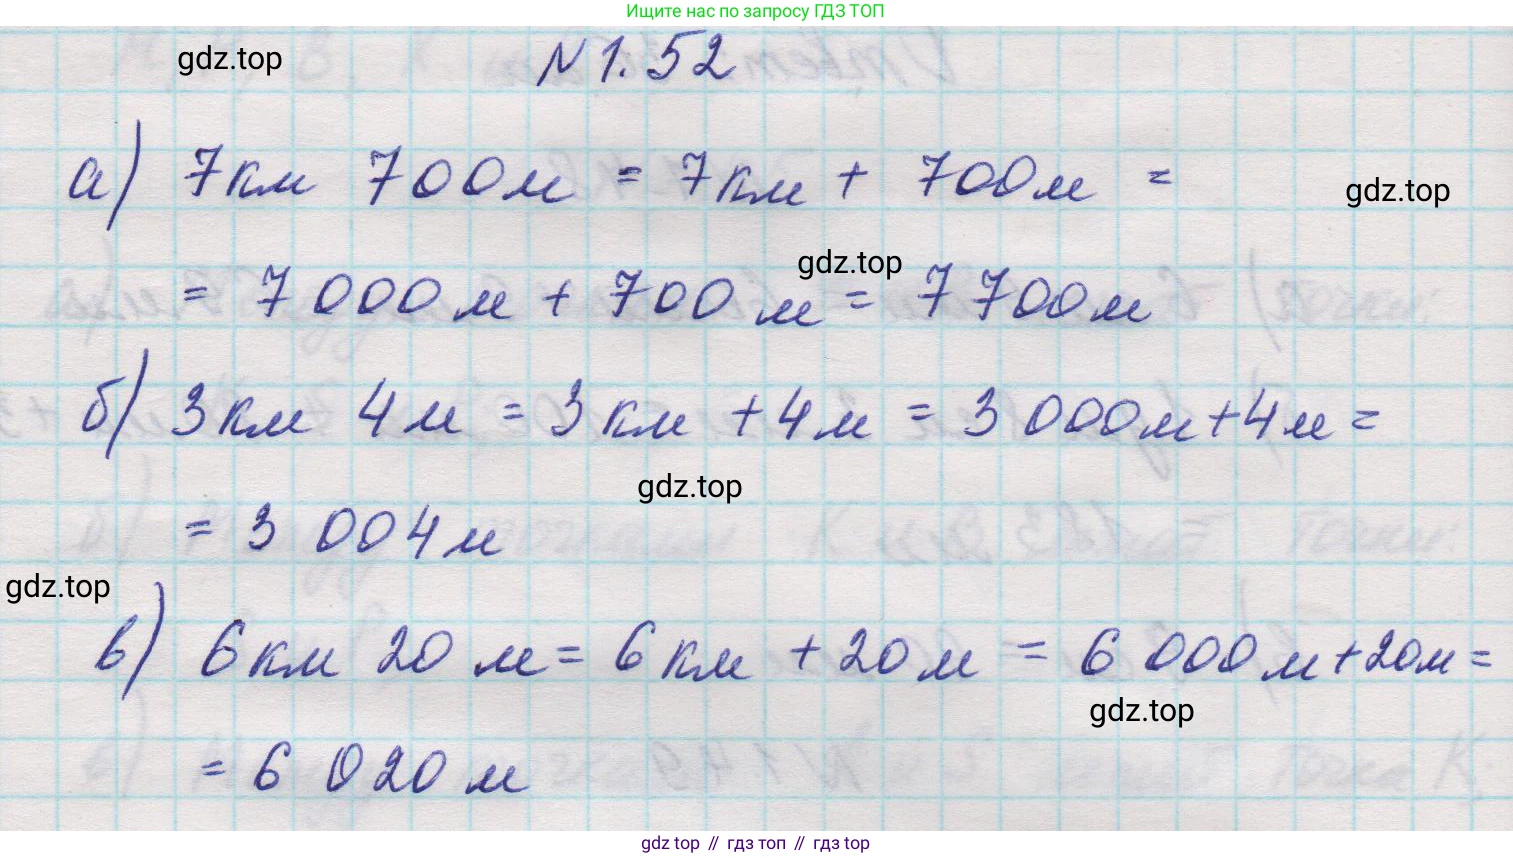 Ищите нас по запросу ГДЗ ТОП
gdz.top
N 1.52
а) 7км 700м = 7км + 700м =
gdz.top
gdz.top
= 7 000м + 700м = 7 700м
б) 3км 4м = 3км + 4м = 3 000м + 4м =
gdz.top
= 3 004м
gdz.top
в) 6км 20м = 6км + 20м = 6 000м + 20м =
gdz.top
= 6 020м
gdz top // гдз топ // гдз top